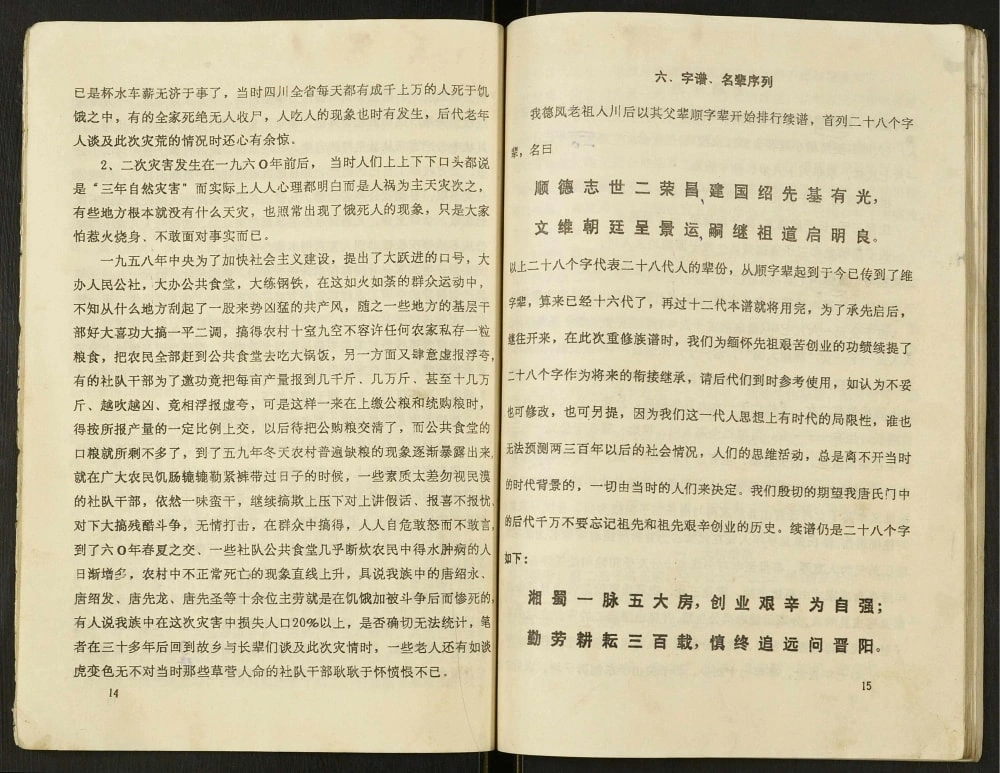 已是杯水车薪无济于事了，当时四川全省每天都有成千上万的人死于饥
饿之中，有的全家死绝无人收尸，人吃人的现象也时有发生，后代老年
人谈及此次灾荒的情况时还心有余惊。
2、二次灾害发生在一九六0年前后， 当时人们上上下下口头都说
是“三年自然灾害”而实际上人人心理都明白而是人祸为主天灾次之，
有些地方根本就没有什么天灾，也照常出现了饿死人的现象，只是大家
怕惹火烧身、不敢面对事实而已。
一九五八年中央为了加快社会主义建设，提出了大跃进的口号，大
办人民公社，大办公共食堂，大练钢铁，在这如火如荼的群众运动中，
不知从什么地方刮起了一股来势凶猛的共产风，随之一些地方的基层干
部好大喜功大搞一平二调，搞得农村十室九空不容许任何农家私存一粒
粮食，把农民全部赶到公共食堂去吃大锅饭，另一方面又肆意虚报浮夸，
有的社队干部为了邀功竟把每亩产量报到几千斤、几万斤、甚至十几万
斤、越吹越凶、竞相浮报虚夸，可是这样一来在上缴公粮和统购粮时，
得按所报产量的一定比例上交，以后待把公购粮交清了，而公共食堂的
口粮就所剩不多了，到了五九年冬天农村普遍缺粮的现象逐渐暴露出来，
就在广大农民饥肠辘辘勒紧裤带过日子的时候，一些素质太差勿视民漠
的社队干部，依然一味蛮干，继续搞欺上压下对上讲假话、报喜不报忧，
对下大搞残酷斗争，无情打击，在群众中搞得，人人自危敢怒而不敢言，
到了六0年春夏之交、一些社队公共食堂几乎断炊农民中得水肿病的人
日渐增多，农村中不正常死亡的现象直线上升，具说我族中的唐绍永、
唐绍发、唐先龙、唐先圣等十余位主劳就是在饥饿加被斗争后而惨死的，
有人说我族中在这次灾害中损失人口20%以上，是否确切无法统计，笔
者在三十多年后回到故乡与长辈们谈及此次灾情时，一些老人还有如谈
虎变色无不对当时那些草菅人命的社队干部耿耿于怀愤恨不已。
14
六、字谱、名辈序列
我德凤老祖人川后以其父辈顺字辈开始排行续谱，首列二十八个字
辈，名曰
顺德志世二荣昌、建国绍先基有光，
文维朝廷呈景运、嗣继祖道启明良。
以上二十八个字代表二十八代人的辈份，从顺字辈起到于今已传到了维
字辈，算来已经十六代了，再过十二代本谱就将用完，为了承先启后，
继往开来，在此次重修族谱时，我们为缅怀先祖艰苦创业的功绩续提了
二十八个字作为将来的衔接继承，请后代们到时参考使用，如认为不妥
也可修改，也可另提，因为我们这一代人思想上有时代的局限性，谁也
无法预测两三百年以后的社会情况，人们的思维活动，总是离不开当时
的时代背景的，一切由当时的人们来决定。我们殷切的期望我唐氏门中
的后代千万不要忘记祖先和祖先艰辛创业的历史。续谱仍是二十八个字
如下：
湘蜀一脉五大房，创业艰辛为自强；
勤劳耕耘三百载，慎终追远问晋阳。
15